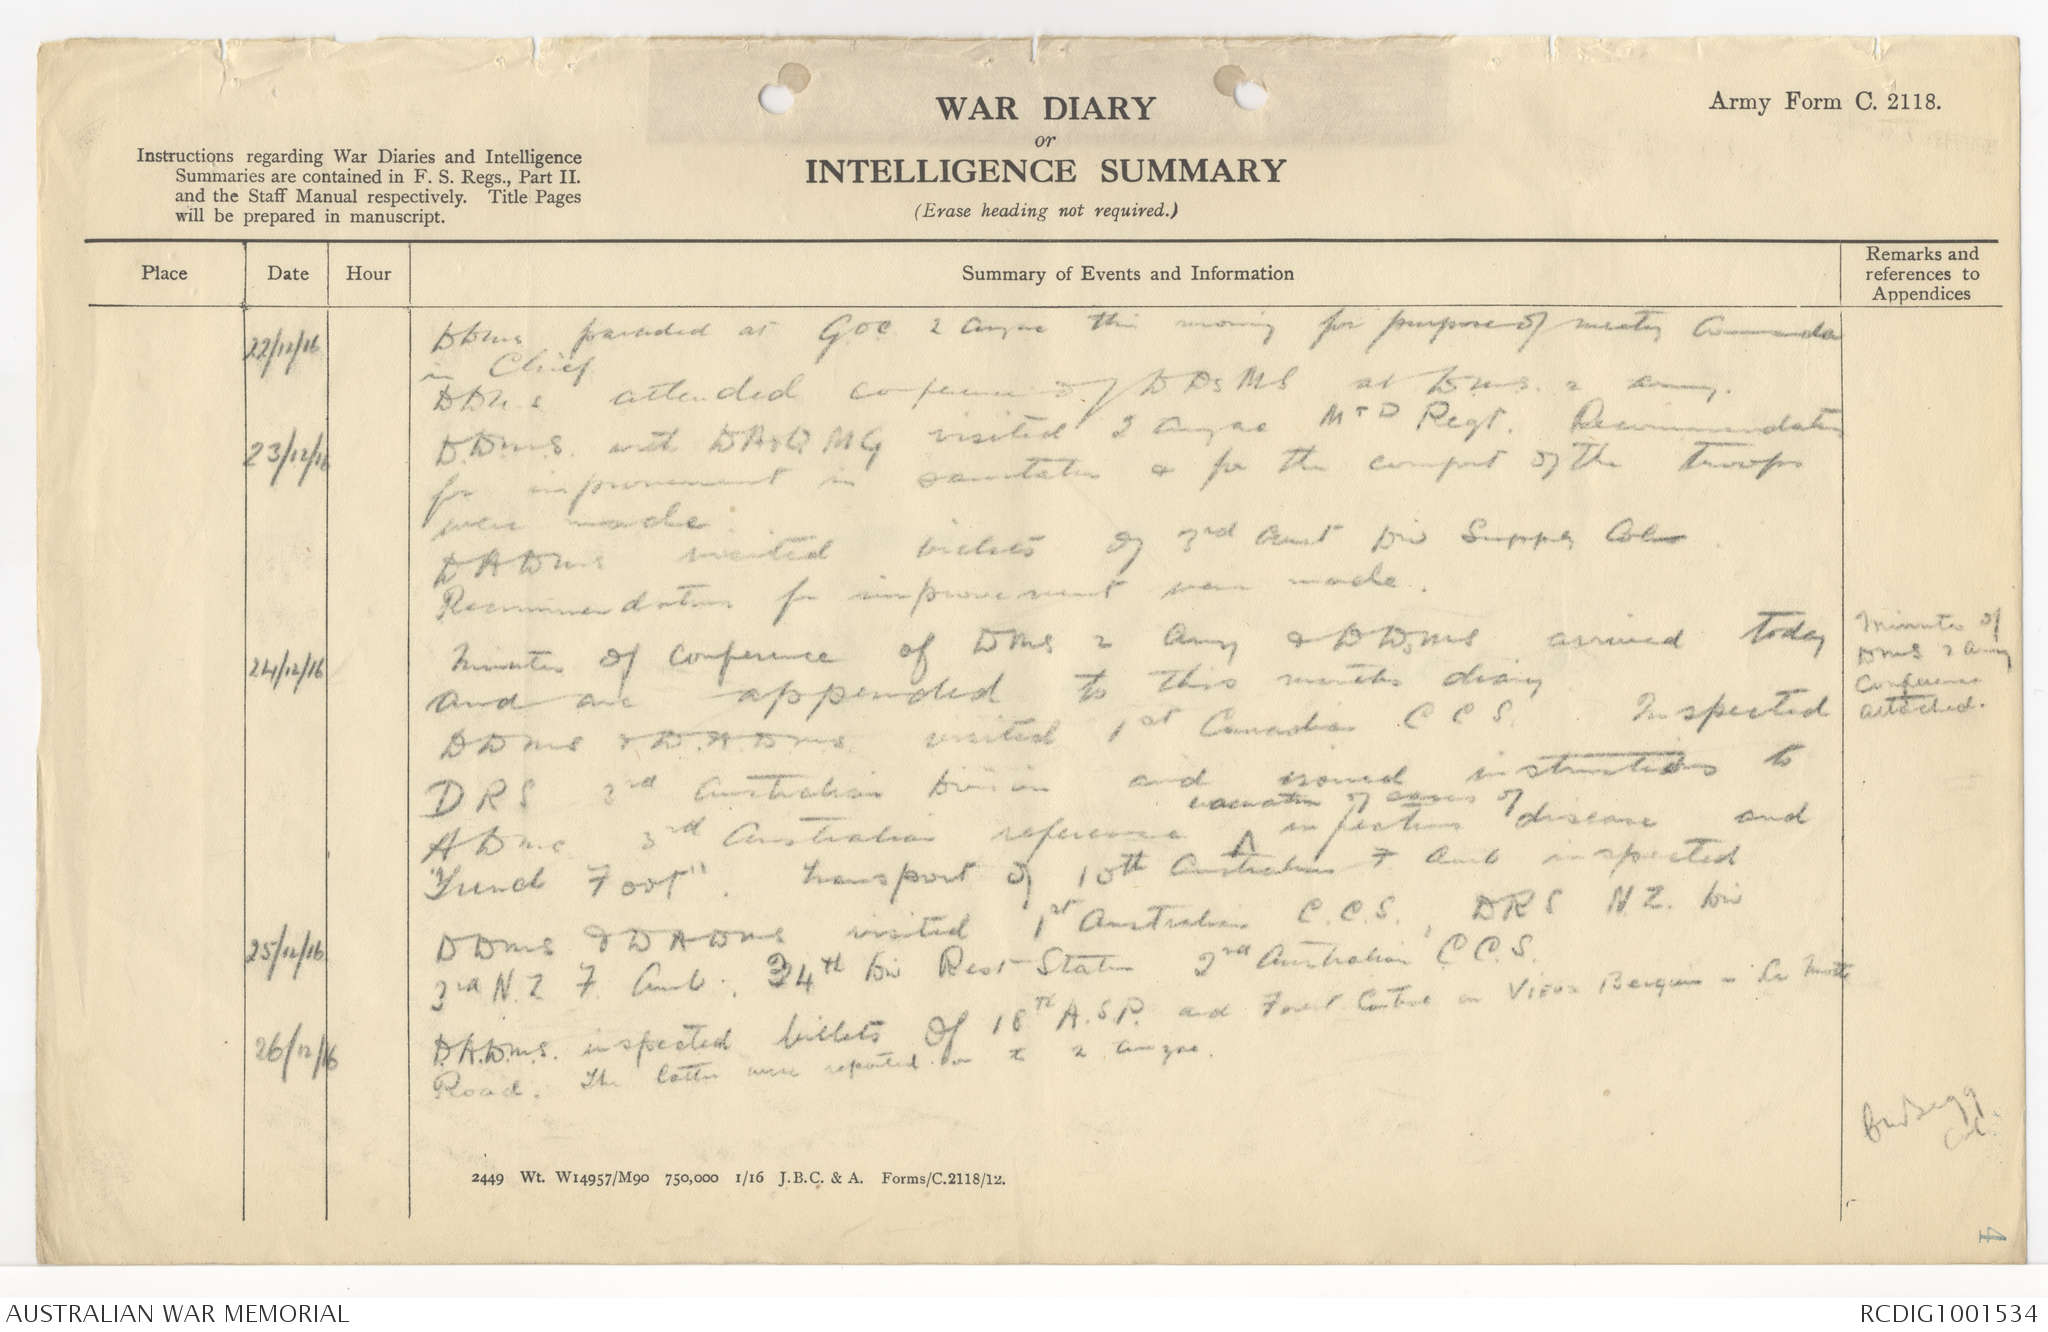 Army Form C. 2118.
WAR DIARY
or
INTELLIGENCE SUMMARY
(Erase heading not required.)
Instructions regarding War Diaries and Intelligence
Summaries are contained in F. S. Regs., Part II.
and the Staff Manual respectively. Title Pages
will be prepared in manuscript.
Place
Date
Hour
Summary of Events and Information
Remarks and
references to
Appendices
22/12/16
DDMS paraded at GOC 2 Anzac this morning for purpose of meeting Commander
in Chief
DDMS attended conference of DDsMS at DMS. 2 Army.
23/12/16
D.DMS. with DA&QMG visited 2 Anzac MTD Regt. Recommendations
for improvement in sanitation & for the comfort of the troops
were made.
DADMS visited billets of 3rd Aust Div Supply Col
Recommendations for improvement were made.
24/12/16
Minutes of conference of DMS 2 Army & DDsMS arrived today
and are appended to this months diary
Minutes of
DMS 2 Army
Conference
attached.
DDMS & D.A.DMS. visited 1st Canadian C C S. Inspected
DRS 3rd Australian Division and issued instructions to
ADMS 3rd Australian reference ^ evacuation of cases of infectious disease and
"Trench Foot". Transport of 10th Australian F Amb inspected
25/12/16
DDMS & DADMS visited 1st Australian C.C.S., DRS N.Z. Div
3rd N.Z F. Amb., 34th Div Rest Station 2nd Australian C.C.S.
26/12/16
D.A.D.M.S. inspected billets of 18TH A.S.P. and Forest Control on Vieux Berquin - La Motte
Road. The latter were reported on to 2 Anzac.
Begg
Col.
2449 Wt. W14957/M90 750,000 1/16 J.B.C. & A. Forms/C.2118/12.
4
AUSTRALIAN WAR MEMORIAL
RCDIG1001534